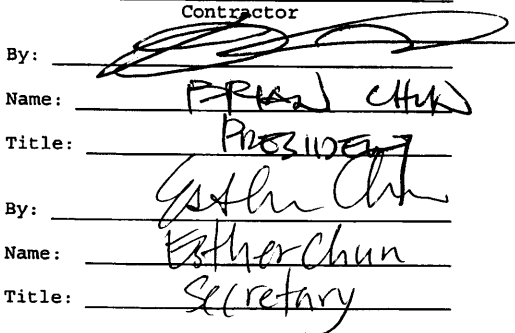 Contractor
By:
Name: BRIAN CHUN
Title: PRESIDENT
By: Esther Chun
Name: Esther Chun
Title: Secretary